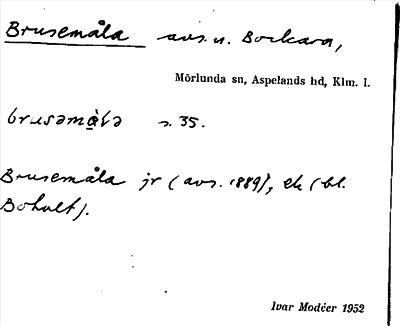 Brusemåla avs. u. Bockara,
Mörlunda sn, Aspelands hd, Klm. l.
s. 35.
Brusemåla jr (avs. 1889), ek (bl.
Bohult).
Ivar Modéer 1952